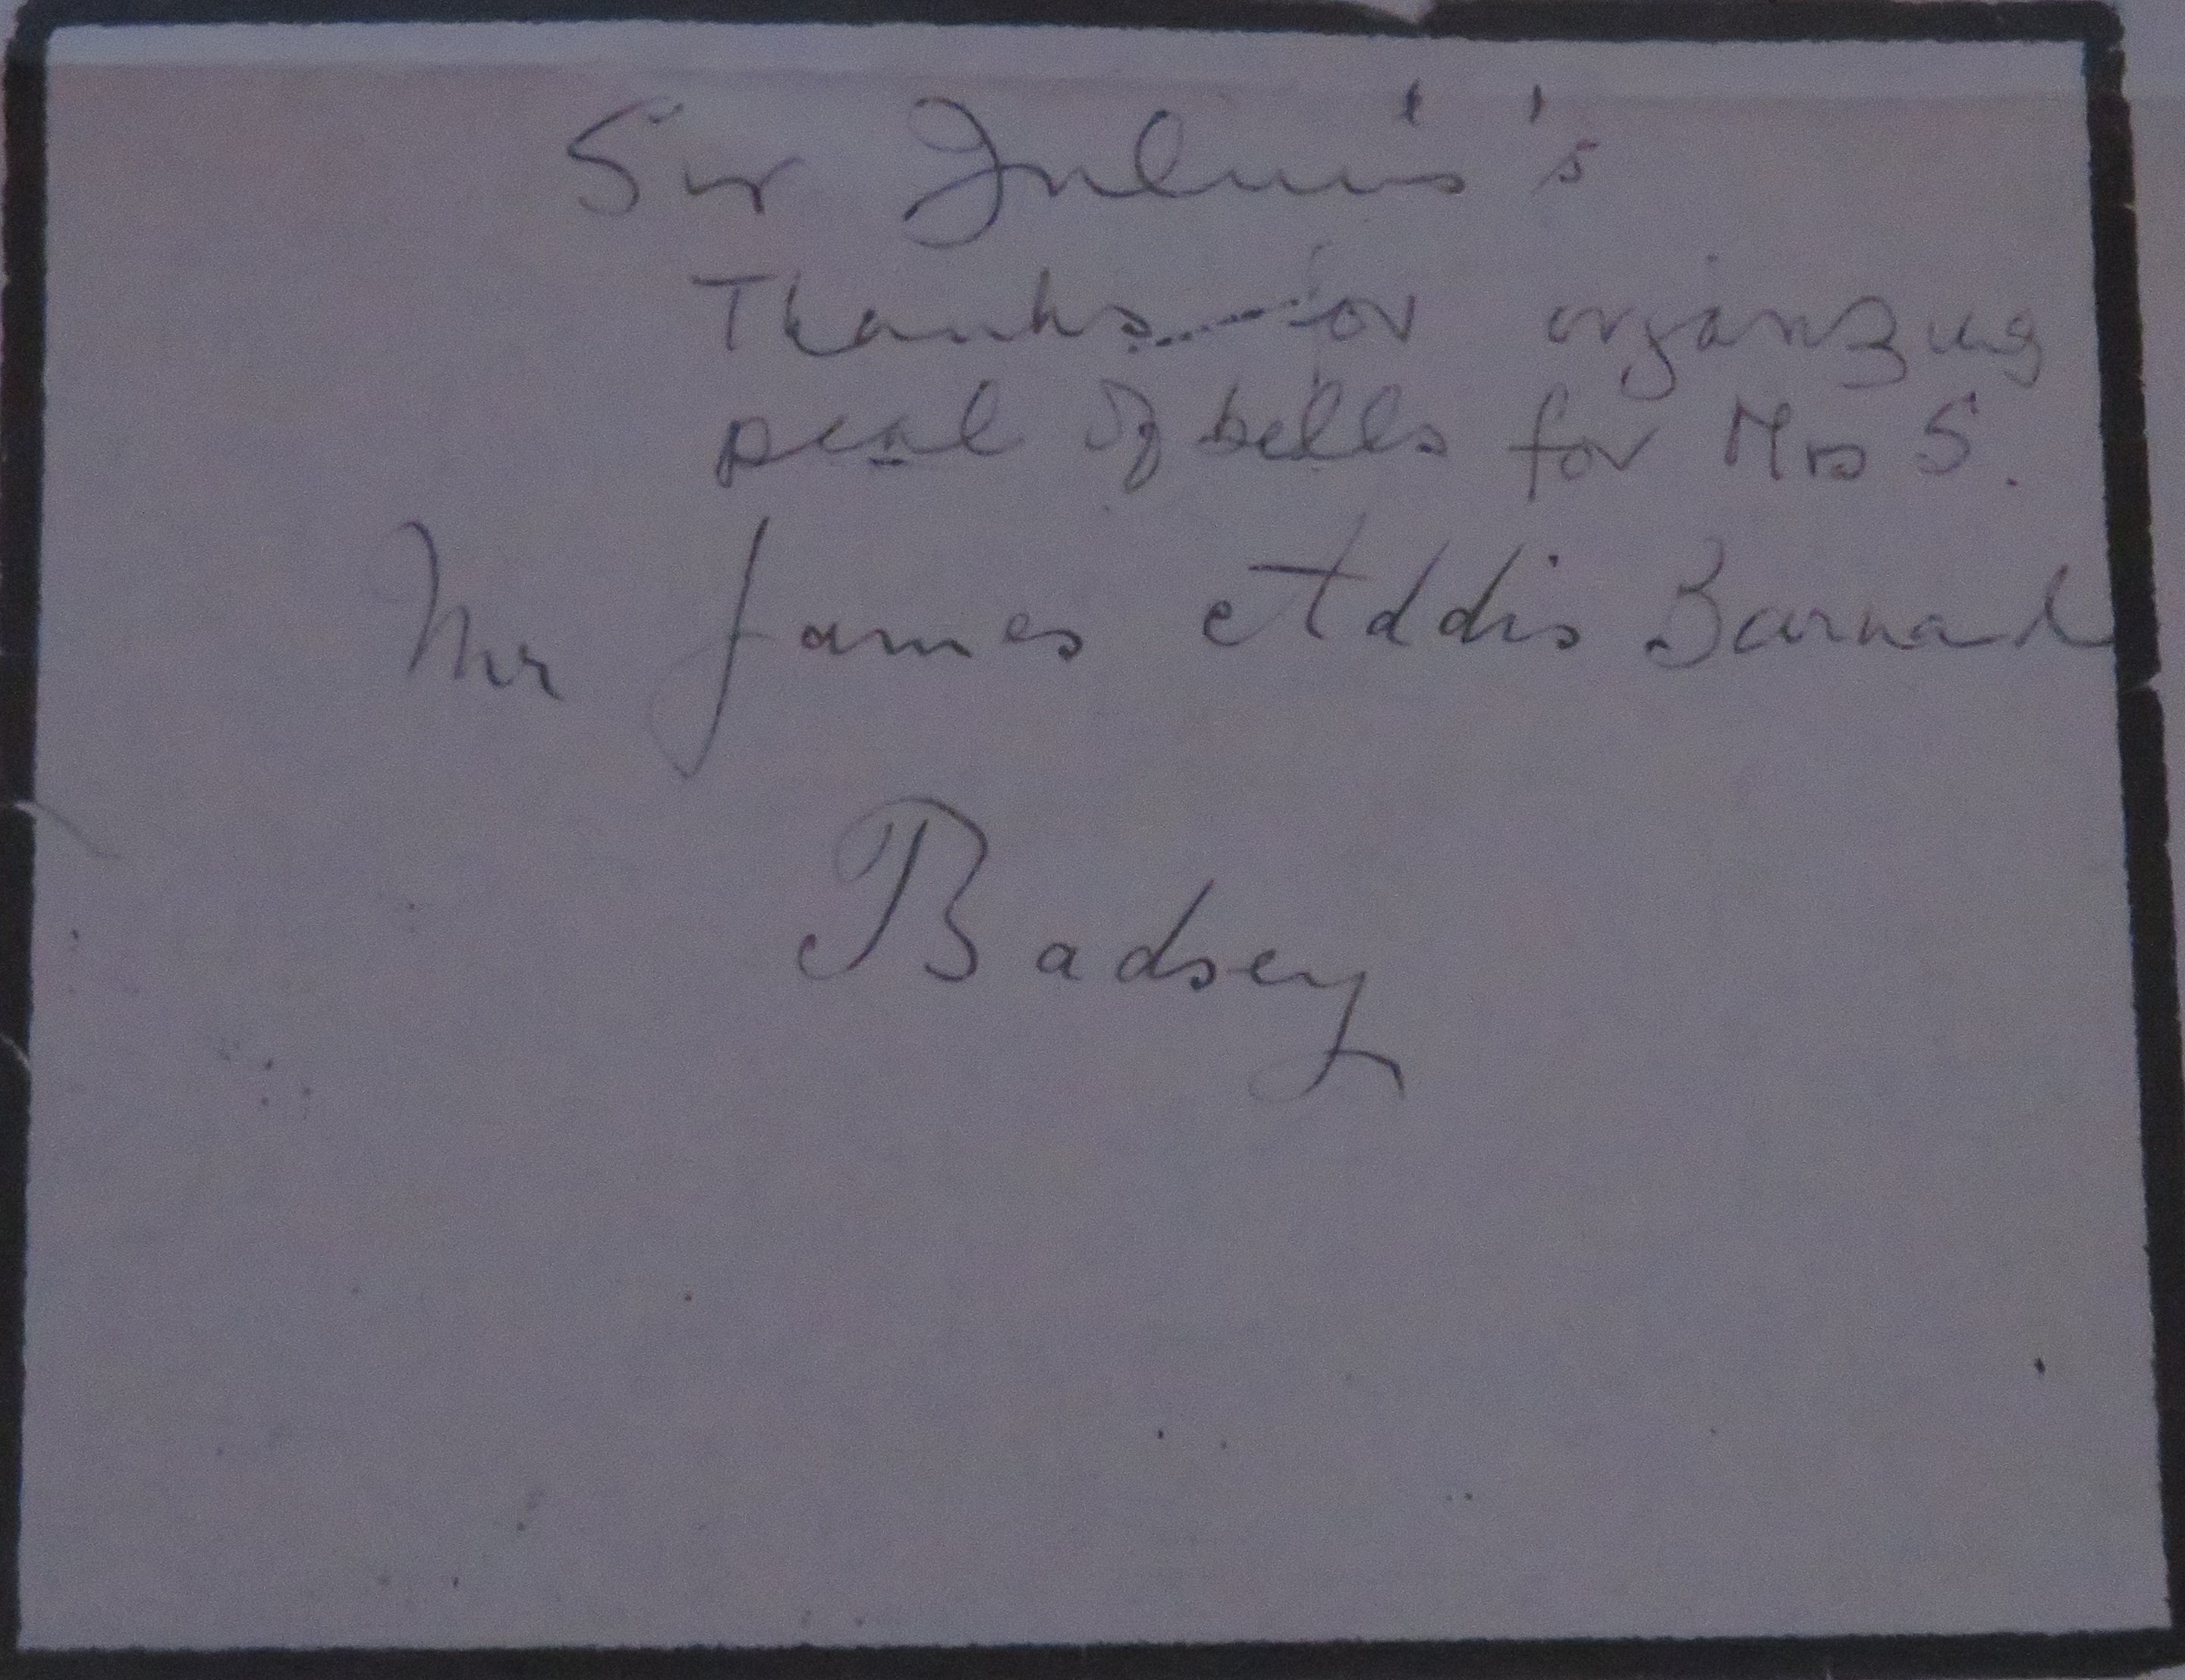 Sir Julius's
Thanks for organizing
peal of bells for Mrs S.
Mr James Addis Barnard
Badsey